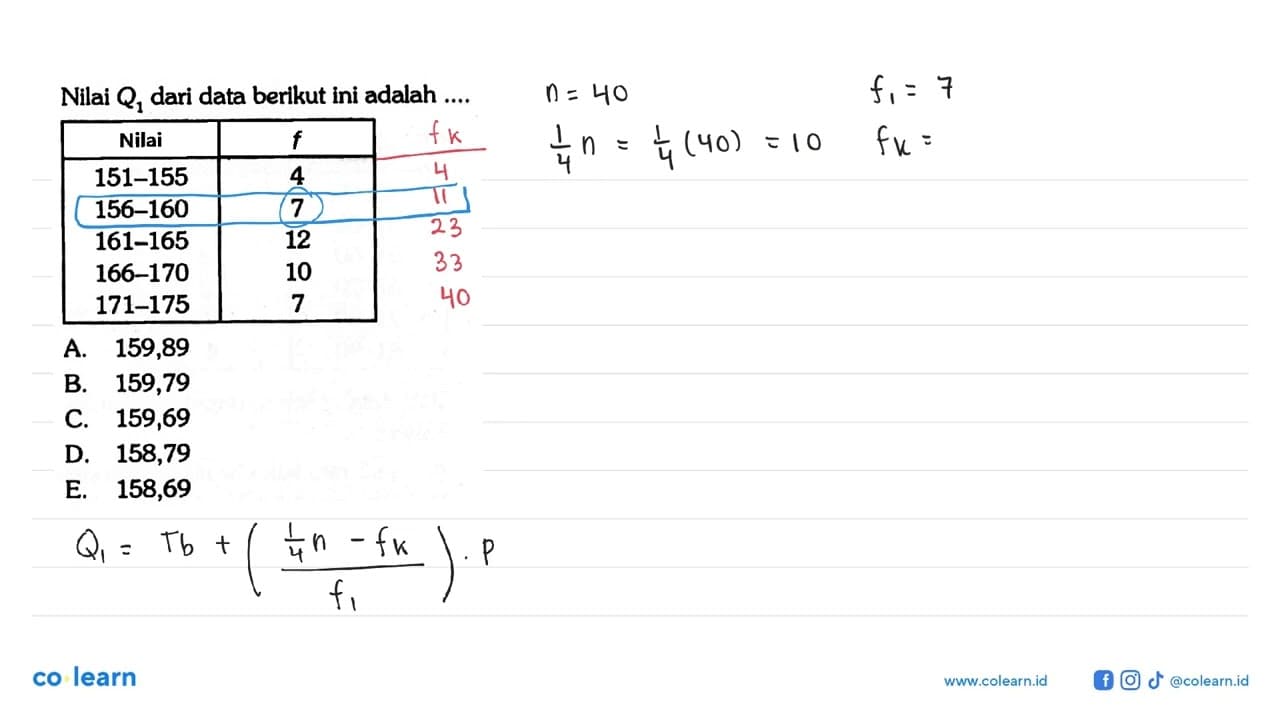 Nilai Q₁ dari data berikut ini adalah ....
Nilai f fk
151–155 4 4
156–160 7 11
161–165 12 23
166–170 10 33
171–175 7 40
A. 159,89
B. 159,79
C. 159,69
D. 158,79
E. 158,69
Q₁ = Tb + ( (1/4 n - fk) / f₁ ) . p
n = 40
1/4 n = 1/4 (40) = 10
f₁ = 7
fk =
co learn
www.colearn.id
@colearn.id